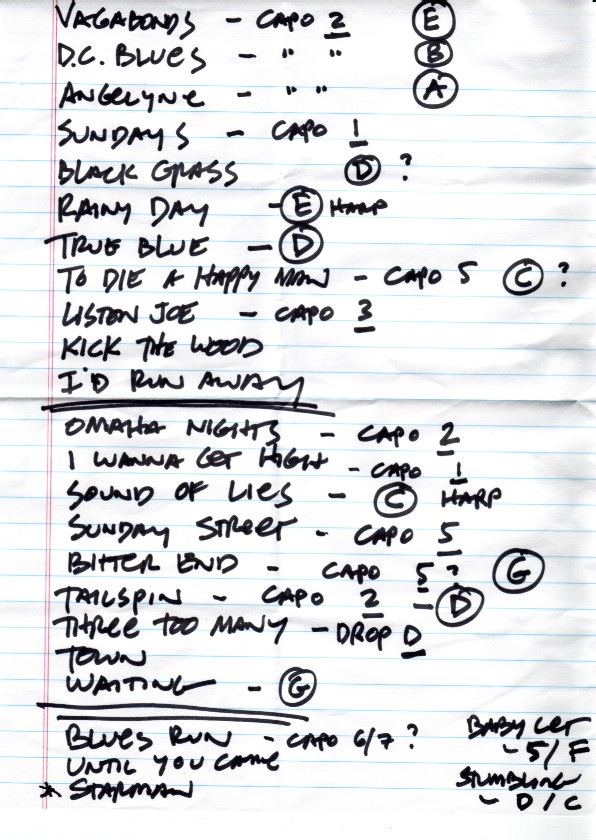 VAGABONDS - CAPO 2 E
D.C. BLUES - " " B
ANGELYNE - " " A
SUNDAYS - CAPO 1
BLACK GRASS D ?
RAINY DAY - E HARP
TRUE BLUE - D
TO DIE A HAPPY MAN - CAPO 5 C ?
LISTEN JOE - CAPO 3
KICK THE WOOD
I'D RUN AWAY
OMAHA NIGHTS - CAPO 2
I WANNA GET HIGH - CAPO 1
SOUND OF LIES - C HARP
SUNDAY STREET - CAPO 5
BITTER END - CAPO 5 ? G
TAILSPIN - CAPO 2 - D
THREE TOO MANY - DROP D
TOWN
WAITING - G
BLUES RUN - CAPO 6/7 ?
UNTIL YOU CAME
* STARMAN
BABY LET
- 5/F
STUMBLING
- D/C